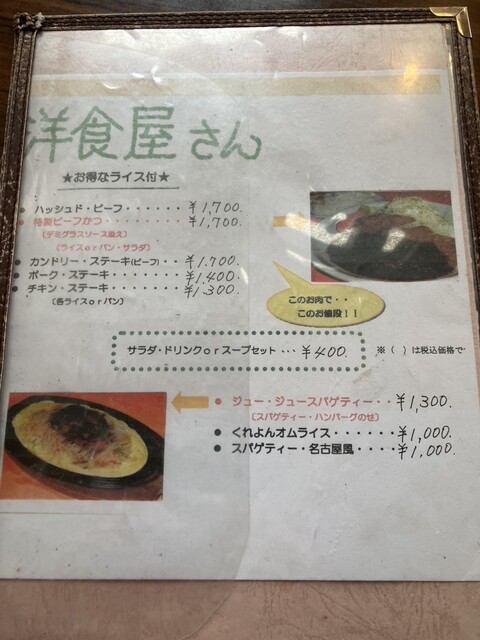 洋食屋さん
★お得なライス付★
● ハッシュド・ビーフ・・・・・・¥1,700.
● 特製ビーフかつ・・・・・・・¥1,700
〔デミグラスソース添え〕
〔ライスorパン・サラダ〕
● カンドリー・ステーキ(ビーフ)・・¥1.700
● ポーク・ステーキ・・・・・・¥1.400
● チキン・ステーキ・・・・・・¥1.300.
〔各ライスorパン〕
このお肉で・・
このお値段！！
サラダ・ドリンクorスープセット・・・¥400.
※（ ）は税込価格で
● ジュー・ジュースパゲティー・・¥1,300.
〔スパゲティー・ハンバーグのせ〕
● くれよんオムライス・・・・・・¥1,000.
● スパゲティー・名古屋風・・・・¥1,000.